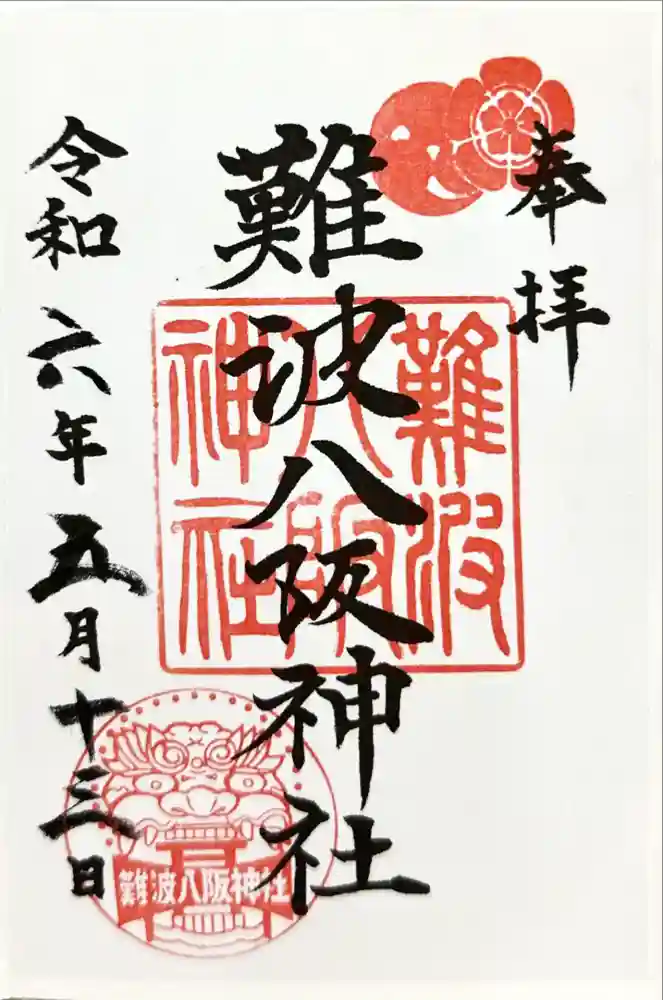 奉拝
難波八阪神社
難波
八阪
神社
令和六年五月十三日
難波八阪神社